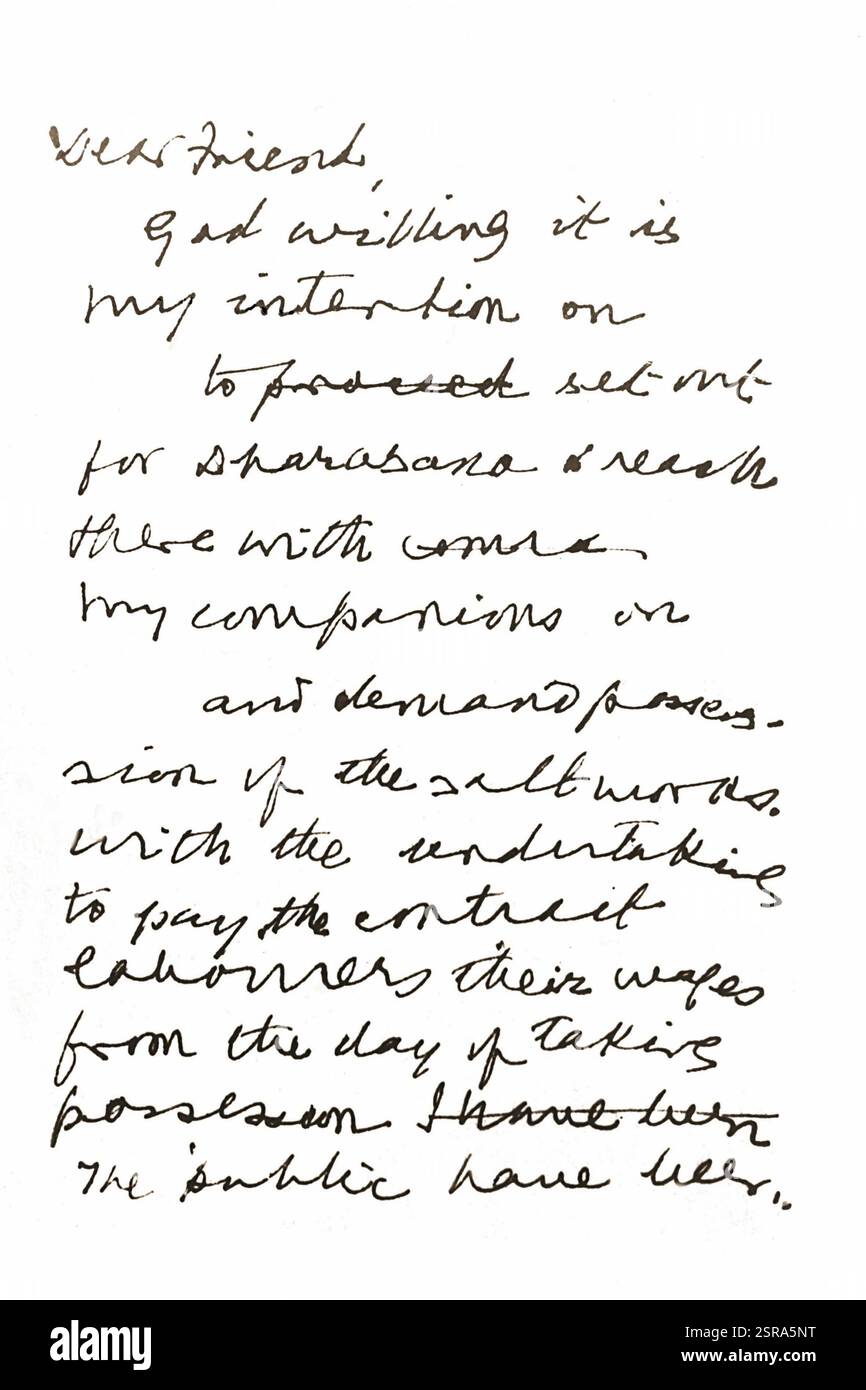 Dear Friend,
God willing it is
my intention on
to proceed set out
for Dharasana & reach
there with comra
my companions on
and demand posses-
sion of the salt works.
with the undertaking
to pay the contract
labourers their wages
from the day of taking
possession I have been
The public have been
alamy
Image ID: 2SRA5NT
www.alamy.com